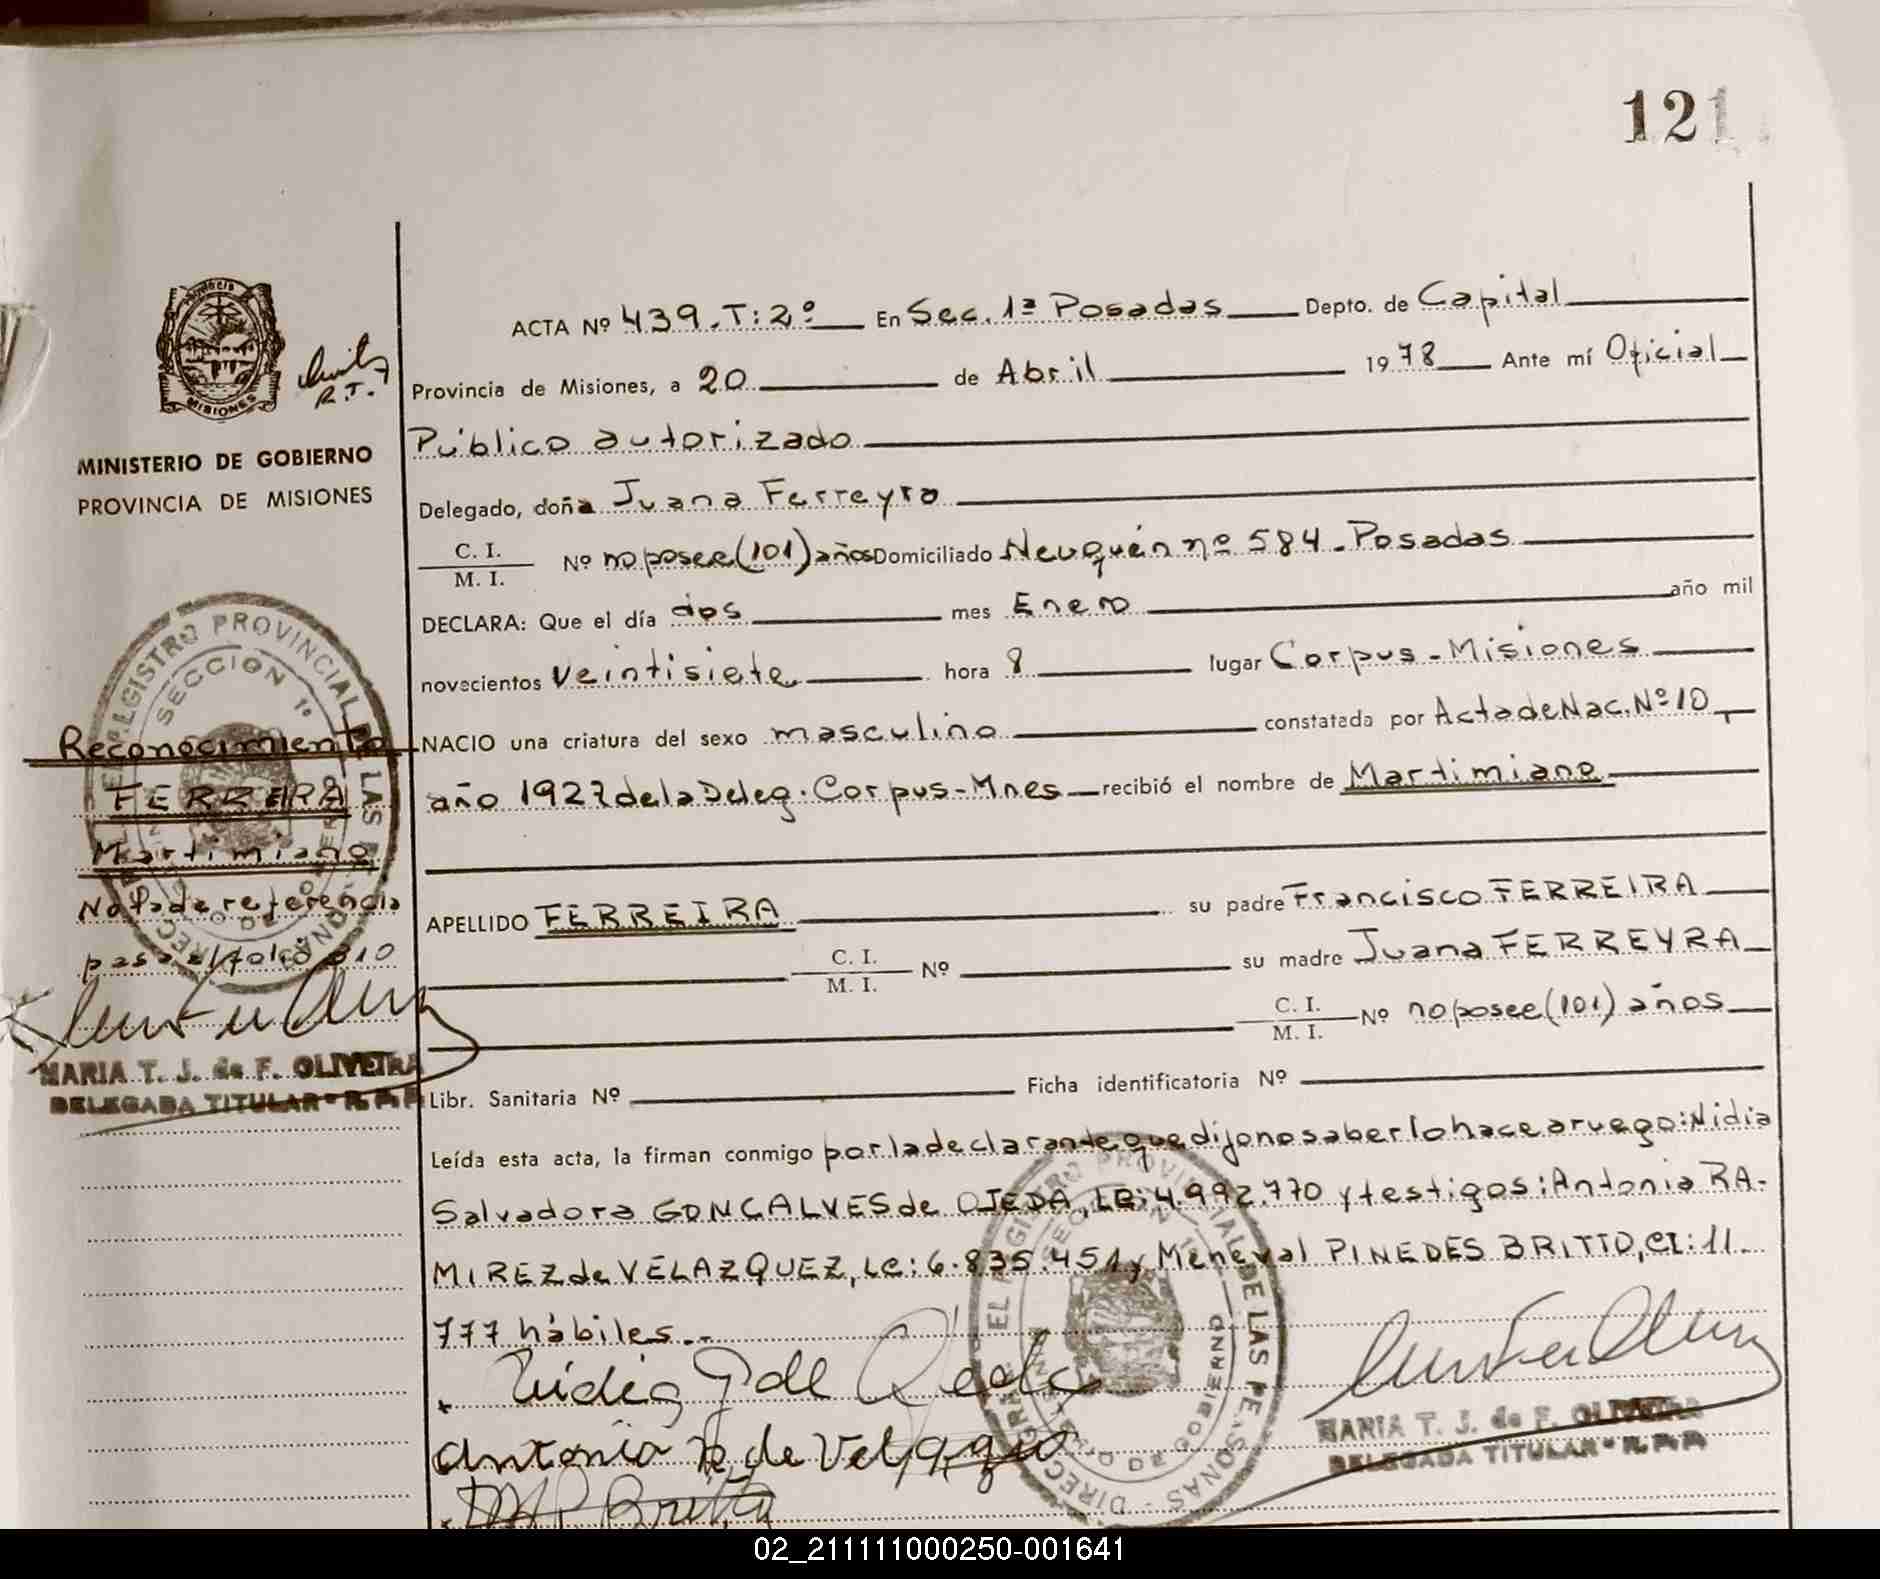 121
ACTA Nº 439.T:2º En Sec. 1ª Posadas Depto. de Capital
Provincia de Misiones, a 20 de Abril 1978 Ante mí Oficial
Público autorizado
Delegado, doña Juana Ferreyra
C. I.
M. I.
Nº no posee (101) años Domiciliado Neuquén nº 584 - Posadas
DECLARA: Que el día dos mes Enero año mil
novecientos veintisiete hora 8 lugar Corpus - Misiones
NACIO una criatura del sexo masculino constatada por Acta de Nac. Nº 10
año 1927 de la Deleg. Corpus - Mnes recibió el nombre de Martimiano
APELLIDO FERREIRA su padre Francisco FERREIRA
C. I.
M. I.
Nº su madre Juana FERREYRA
C. I.
M. I.
Nº no posee (101) años
Libr. Sanitaria Nº Ficha identificatoria Nº
Leída esta acta, la firman conmigo por la declarante que dijo no saber lo hace a ruego: Nidia
Salvadora GONCALVES de OJEDA, LC: 4.992.770 y testigos: Antonia RA-
MIREZ de VELAZQUEZ, LC: 6.835.451 y Meneval PINEDES BRITTO, CI: 11.
777 hábiles.-
Nidia G de Ojeda
Antonia R de Velazquez
Britto
MARIA T. J. de F. OLIVEIRA
DELEGADA TITULAR - R.P.P.
EL REGISTRO PROVINCIAL DE LAS PERSONAS - DIRECC
SECCION 1º
MINISTERIO DE GOBIERNO
PROVINCIA DE MISIONES
Provincia
MISIONES
R.T.
REGISTRO PROVINCIAL DE LAS PERSONAS - DIRECC
SECCION 1º
Reconocimiento
FERREIRA
Martimiano
Nota de referencia
pasa al folio 310
MARIA T. J. de F. OLIVEIRA
DELEGADA TITULAR - R.P.P.
02_211111000250-001641